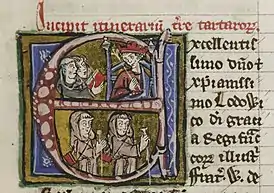 Incipit itinerarium tre tartaroꝝ
Excellentis
simo dño ⁊
xpianissi
mo Lodowi
co di grati
a regi franc
coꝝ illustˀ
ffrat̾. W. de